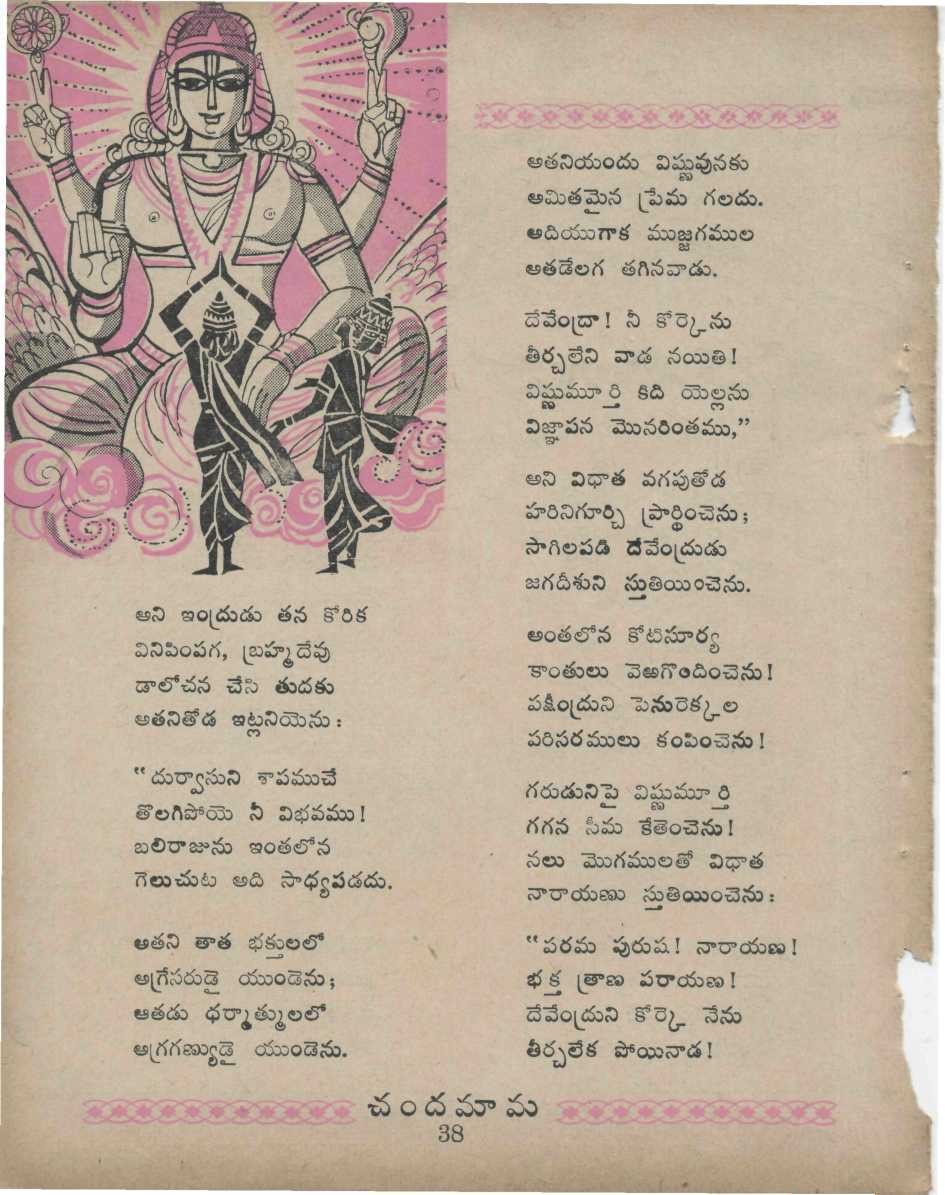 అని ఇంద్రుడు తన కోరిక
వినిపింపగ, బ్రహ్మదేవు
డాలోచన చేసి తుదకు
అతనితోడ ఇట్లనియెను :
“దుర్వాసుని శాపముచే
తొలగిపోయె నీ విభవము!
బలిరాజును ఇంతలోన
గెలుచుట అది సాధ్యపడదు.
ఆతని తాత భక్తులలో
అగ్రేసరుడై యుండెను;
ఆతడు ధర్మాత్ములలో
అగ్రగణ్యుడై యుండెను.
అతనియందు విష్ణువునకు
అమితమైన ప్రేమ గలదు.
అదియుగాక ముజ్జగముల
ఆతడేలగ తగినవాడు.
దేవేంద్రా! నీ కోర్కెను
తీర్చలేని వాడ నయితి!
విష్ణుమూర్తి కిది యెల్లను
విజ్ఞాపన మొనరింతము,”
అని విధాత వగపుతోడ
హరినిగూర్చి ప్రార్థించెను;
సాగిలపడి దేవేంద్రుడు
జగదీశుని స్తుతియించెను.
అంతలోన కోటిసూర్య
కాంతులు వెఱగొందించెను!
పక్షీంద్రుని పెనురెక్కల
పరిసరములు కంపించెను!
గరుడునిపై విష్ణుమూర్తి
గగన సీమ కేతెంచెను!
నలు మొగములతో విధాత
నారాయణు స్తుతియించెను :
“పరమ పురుష! నారాయణ!
భక్త త్రాణ పరాయణ!
దేవేంద్రుని కోర్కె నేను
తీర్చలేక పోయినాడ!
చందమామ
38